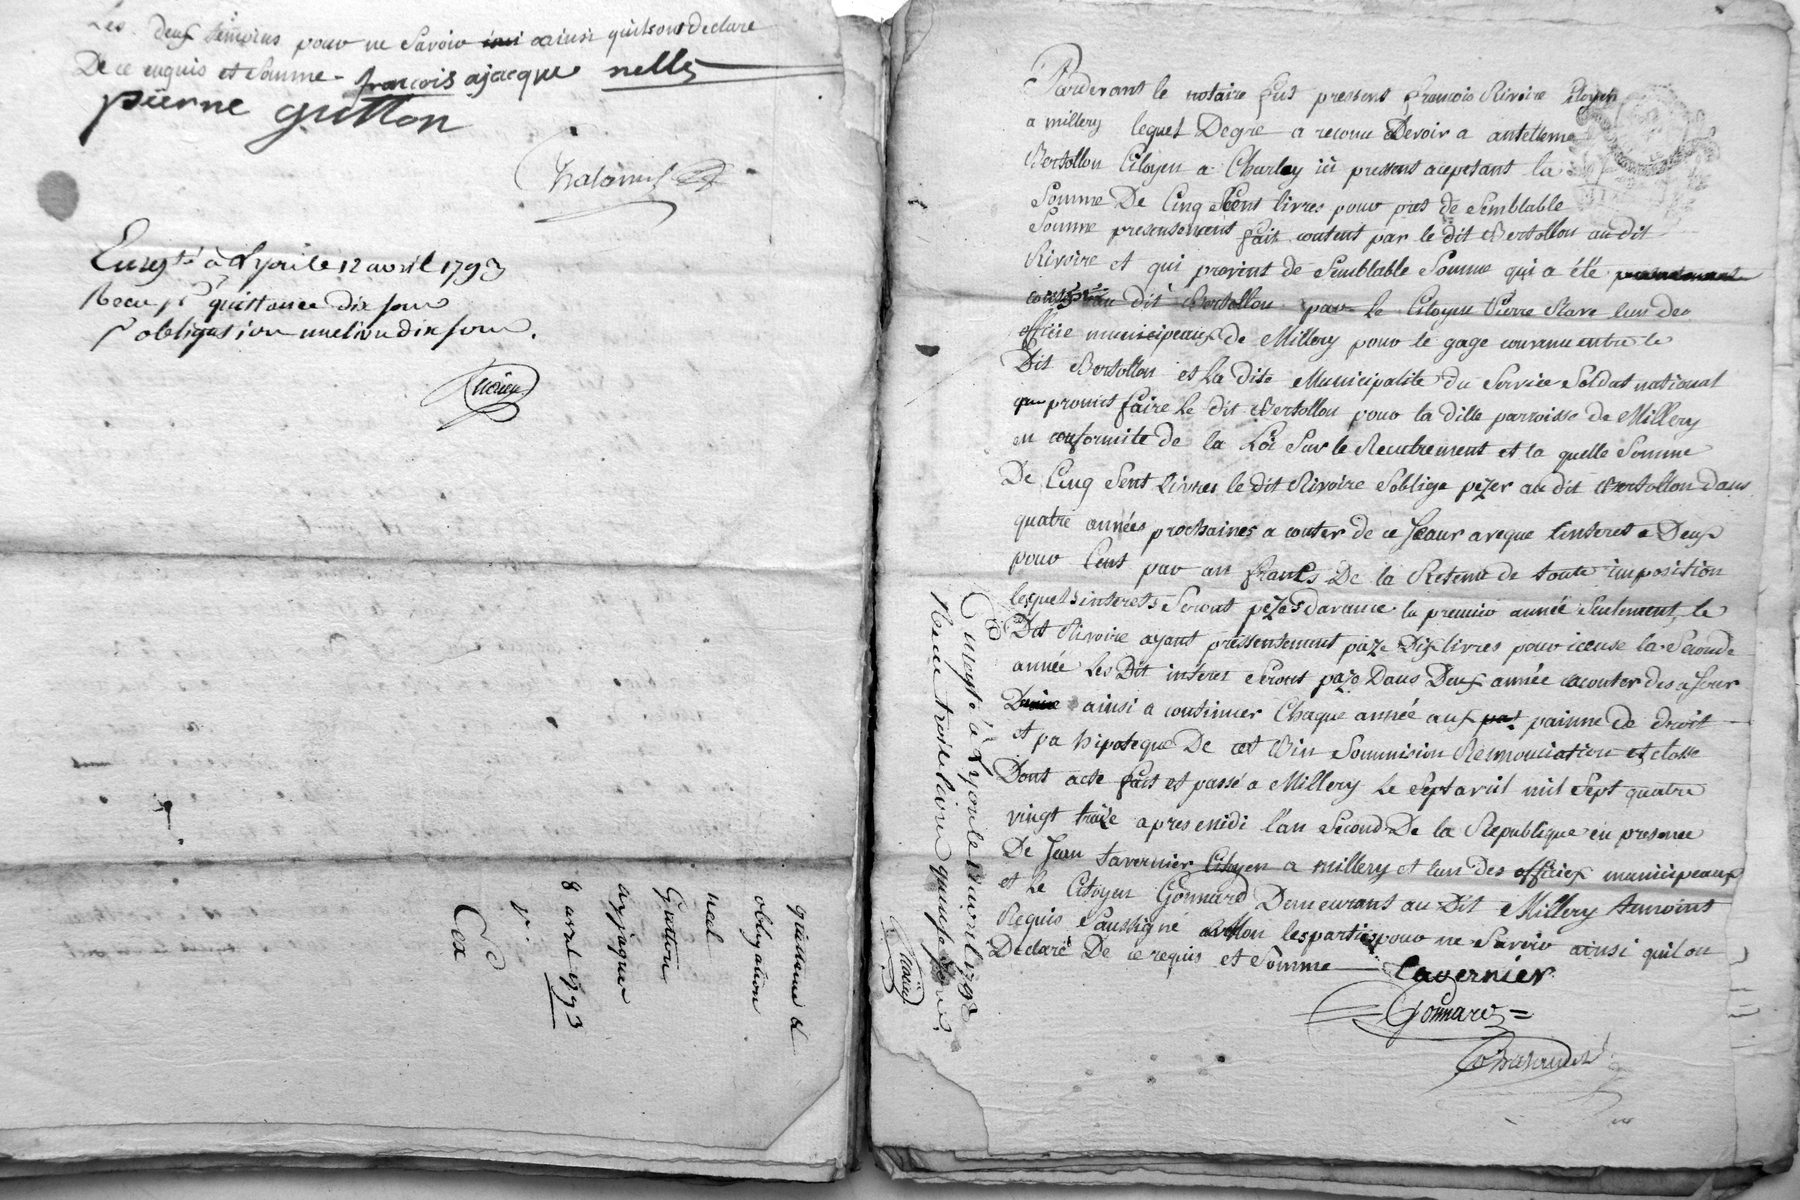 Les deux témoins pour ne Savoir ainsi quils ont declaré
De ce enquis et somme - francois ajacque nelly
pierre gutton
Enregté à Lyon le 12 avril 1793
Recu pr quittance dix sous
pr obligation une livre dix sous.
quittance et
obligation
neel
Gutton
ajaque
8 avril 1793
Pardevant le notaire fut present françois Rivoire Citoyen
a millery lequel Degre a reconu Devoir a antelleme
Bertollon Citoyen a Charley ici pressent aceptant la
Somme De Cinq Cent livres pour pret de Semblable
Somme presentement fait content par le dit Bertollon au dit
Rivoire et qui provient de Semblable Somme qui a été
au dit Bertollon par le Citoyen Pierre Rave lun des
officie municipeaux de Millery pour le gage convenu entre le
Dit Bertollon et La dite Municipalite du Service Soldat national
que promet faire Le dit Bertollon pour la ditte parroisse de Millery
en conformité de la Loi Sur le Recutrement et la quelle Somme
De Cinq Sent Livres le dit Rivoire soblige pezer au dit Bertollon dans
quatre années prochaines a conter de ce Jour aveque linteret a Deux
pour Cent par an francs De la Retenue de toute imposition
lesquels interets Seront pezes davance la premier année Seulement, le
Dit Rivoire ayant pressentement paze Dix livres pour iceuse la Seconde
année Les Dit interet Seront paze Dans Deux année a conter des a Jour
ainsi a continuer Chaque année aux painne de droit
et pa hipoteque De cet Bien Sommision Rennonciation et closse
Dont acte fait et passé a Millery Le Sept avril mil Sept quatre
vingt traize apres midi l'an Second De la Republique en presence
De Jean tavernier Citoyen a millery et lun des officiex municipeaux
et Le Citoyen Gonnard Demeurant au Dit Millery temoins
Requis Soussigné et non les parties pour ne Savoir ainsi quil on
Declaré De ce requis et sômme
tavernier
Gonnard
Enregté à Lyon le 12 avril 1793
Recu trois livres quinze sous